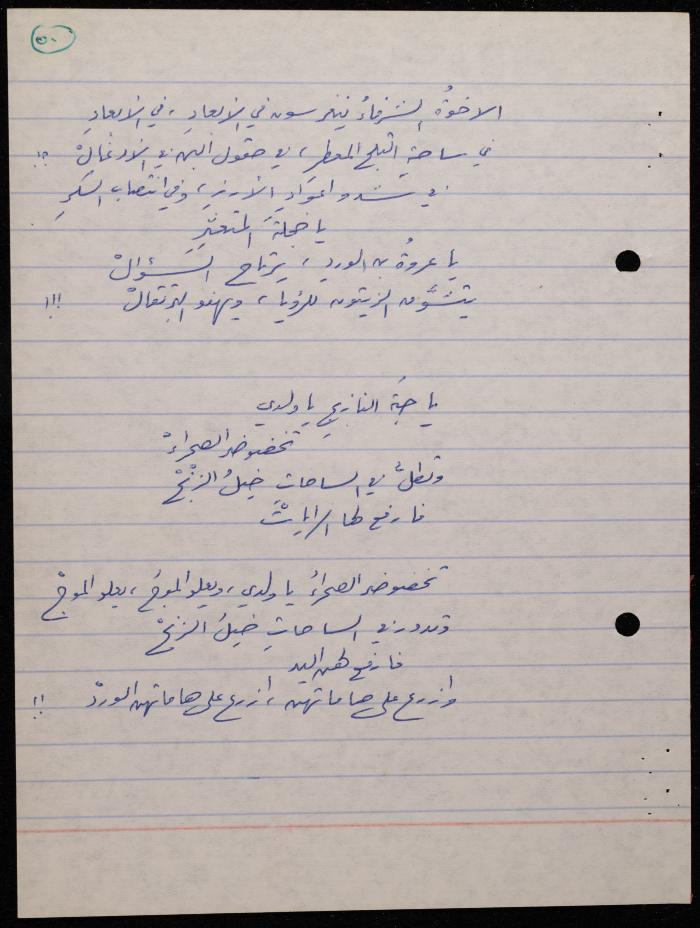 ٥٠
الاخوةُ الشرفاءُ ينغرسون في الأبعادِ، في الأبعادِ
في ساحةِ البلح المعطرِ، في حقول البن في الأدغالْ ؟!
في شدو اعوادِ الأرزِ، وفي انتصاب السكرِ
يا خجلةَ المتعثرِ
يا عروةُ بن الورد، يرتاح السؤالْ
يتشوّف الزيتون للرؤيا، ويهفو البرتقالْ !!!
يا جبّة النارنج يا ولدي
تخضوضر الصحراءْ
وتطلّ في الساحات خيلُ الزنْجْ
فارفع لها الراياتْ
تخضوضر الصحراءُ يا ولدي، ويعلو الموجُ، يعلو الموجْ
وتدور في الساحاتِ خيلُ الزنْجْ
فارفع لهن اليد
وازرع على هاماتهن، ازرع على هاماتهن الوردْ !!